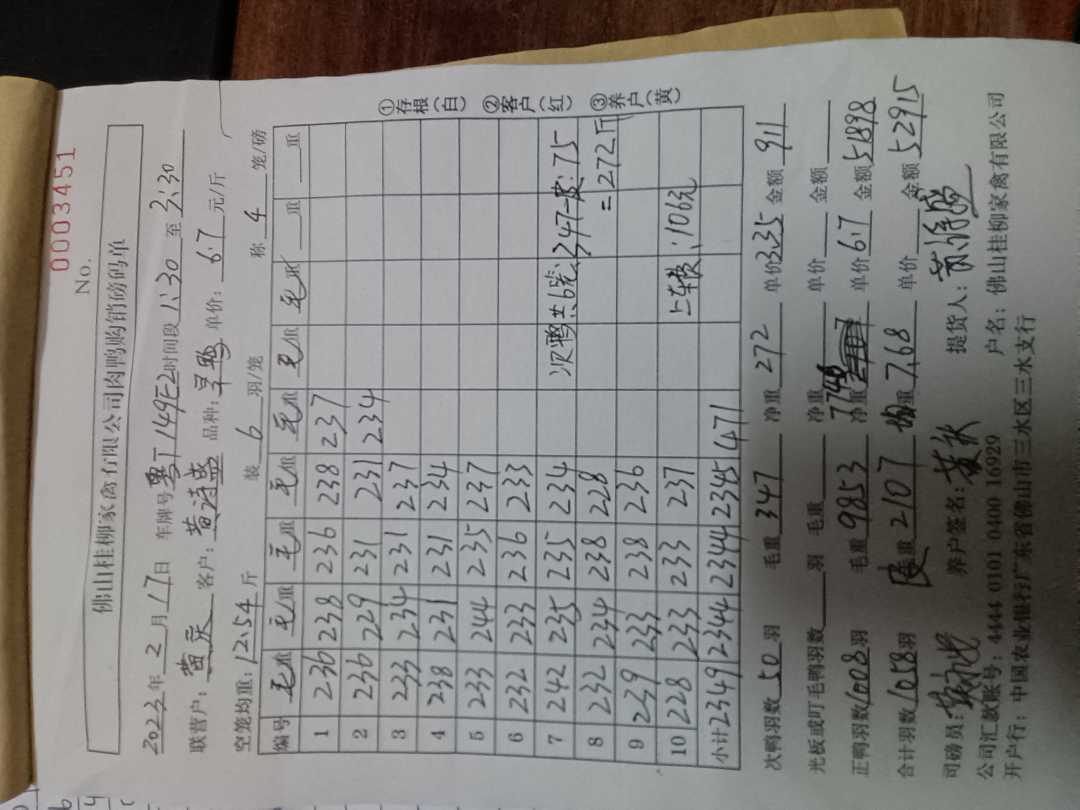 No. 0003451
佛山桂柳家禽有限公司肉鸭购销磅码单
2023年2月17日 车牌号粤T149E2时间段1:30至3:30
联营户：黄庆 客户：黄诗盛 品种：旱鸭 单价：6.7元/斤
空笼均重：12.54斤 装6羽/笼 称4笼/磅
编号 毛重 毛重 毛重 毛重 毛重 毛重 毛重 重 重
1 236 238 236 238 237
2 236 229 231 231 234
3 233 234 231 237
4 238 231 231 234
5 233 244 235 237
6 232 233 236 233
7 242 235 235 234 次鸭共6笼:347-皮:75
8 232 234 238 228 =272斤
9 239 233 238 236
10 228 233 233 237 上车费:106元
小计 2349 2344 2344 2345 471
①存根(白) ②客户(红) ③养户(黄)
次鸭羽数50羽 毛重347 净重272 单价3.35金额911
光板或叮毛鸭羽数 羽 毛重 净重 单价 金额
正鸭羽数1008羽 毛重9853 净重7746 单价6.7金额51898
合计羽数1058羽 皮重2107 均重7.68 单价 金额52915
司磅员： 养户签名：黄庆 提货人：黄诗盛
公司汇款账号：4444 0101 0400 16929 户名：佛山桂柳家禽有限公司
开户行：中国农业银行广东省佛山市三水区三水支行